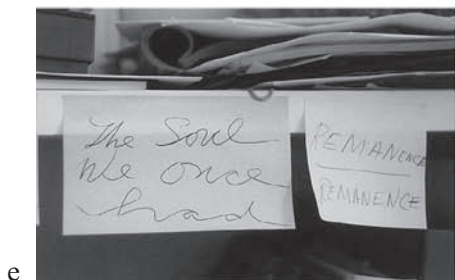 The Soul
We once
had
REMANENCE
REMANENCE
e